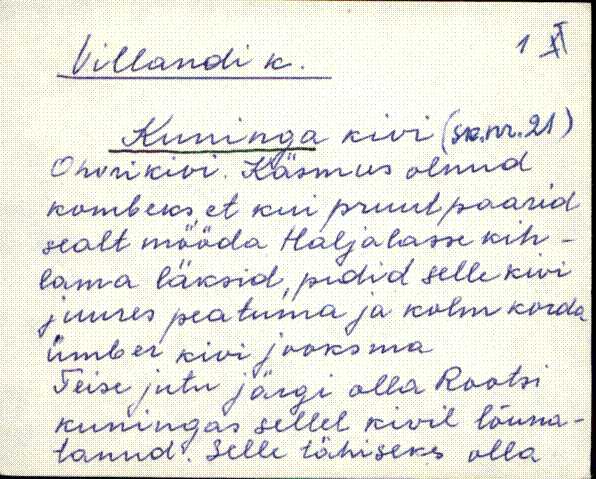 Villandi k.
1 XI
Kuninga kivi (sk. nr. 21)
Ohvrikivi. Käsmus olnud
kombeks, et kui pruutpaarid
sealt mööda Haljalasse kih-
lama läksid, pidid selle kivi
juures peatuma ja kolm korda
ümber kivi jooksma
Teise jutu järgi olla Rootsi
kuningas sellel kivil lõuna-
tanud. Selle tähiseks olla